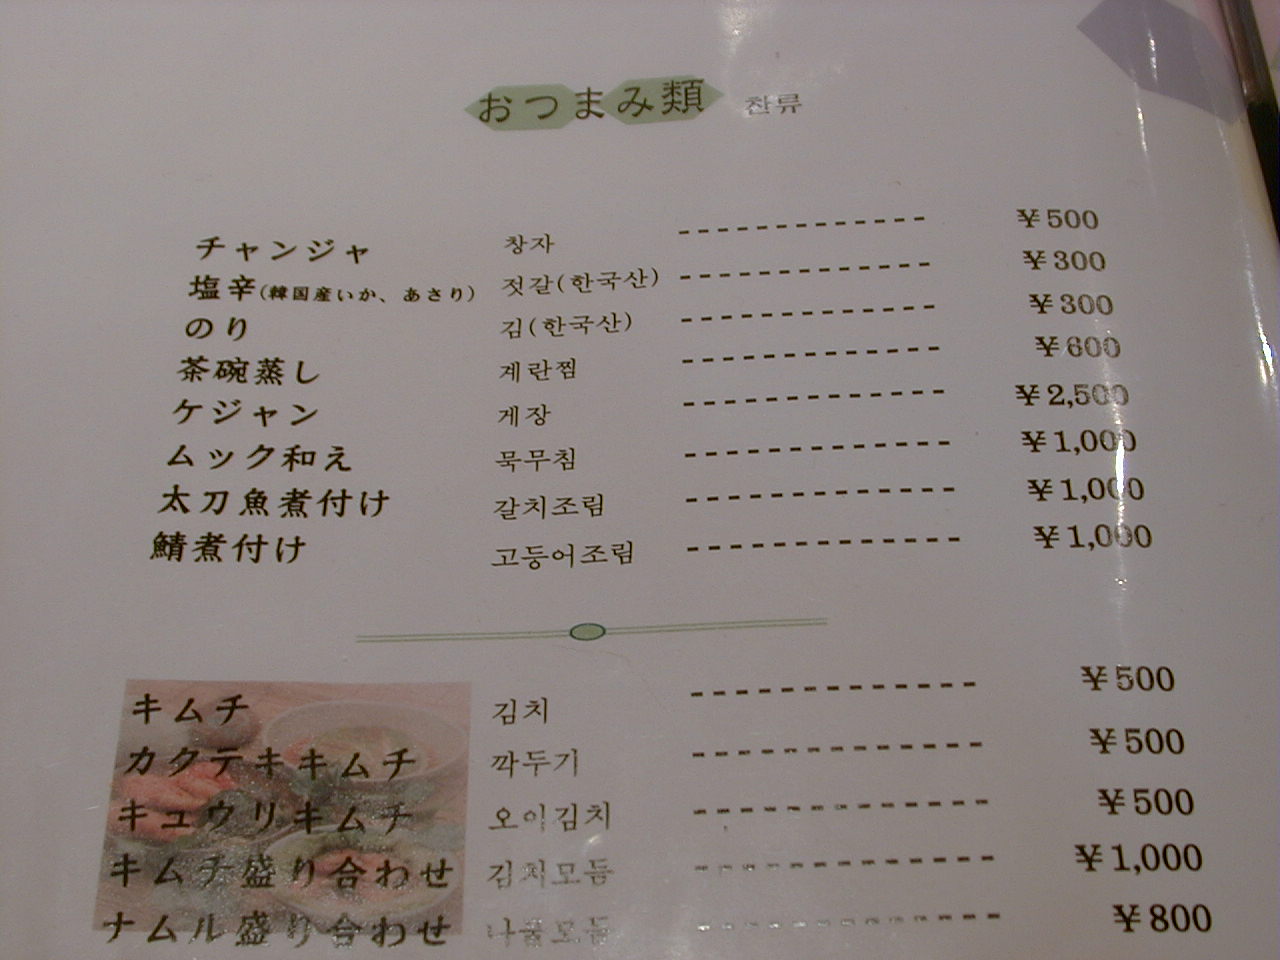 おつまみ類 찬류
チャンジャ 창자 ------------- ¥500
塩辛(韓国産いか、あさり) 젓갈(한국산) ------------- ¥300
のり 김(한국산) ------------- ¥300
茶碗蒸し 계란찜 ------------- ¥600
ケジャン 게장 ------------- ¥2,500
ムック和え 묵무침 ------------- ¥1,000
太刀魚煮付け 갈치조림 ------------- ¥1,000
鯖煮付け 고등어조림 ------------- ¥1,000
キムチ 김치 ------------- ¥500
カクテキキムチ 깍두기 ------------- ¥500
キュウリキムチ 오이김치 ------------- ¥500
キムチ盛り合わせ 김치모듬 ------------- ¥1,000
ナムル盛り合わせ 나물모듬 ------------- ¥800